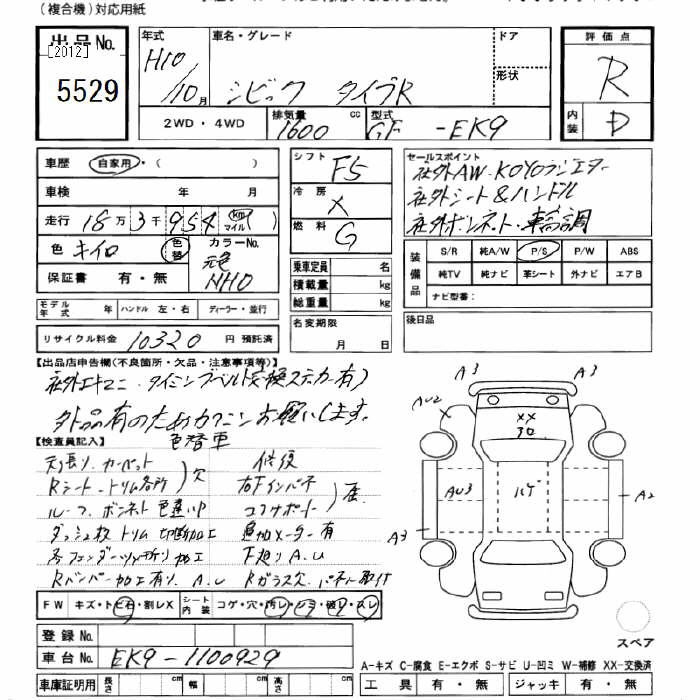 (複合機)対応用紙
出品No.
[2012]
5529
年式 H10/10月
車名・グレード シビック タイプR
ドア
形状
評価点 R
内装 D
2WD・4WD
排気量 1600 cc
型式 GF -EK9
車歴 自家用・( )
車検 年 月
走行 18万3千954 km マイル )
色 キイロ 色替 カラーNo. 元色 NH0
保証書 有・無
シフト F5
冷房 ×
燃料 G
セールスポイント
社外AW・KOYOラジエター
社外シート&ハンドル
社外ボンネット・車高調
装備品 S/R 純A/W P/S P/W ABS
純TV 純ナビ 革シート 外ナビ エアB
ナビ型番:
乗車定員 名
積載量 kg
総重量 kg
モデル年式 年 ハンドル 左・右 ディーラー・並行
名変期限 月 日
後日品
リサイクル料金 10320 円 預託済
【出品店申告欄(不良箇所・欠品・注意事項等)】
社外エキマニ・タイミングベルト交換ステッカー有)
外品有のためカウンセお願いします。
【検査員記入】 色替車
天張り、カーペット
Rシート、トリム各所)欠
修復
右Fインパネ
コアサポート)屈
ルーフ、ボンネット色違いP
ダッシュ板 トリム 切断加工 追加メーター有
各フェンダーツメ折り加工 下廻りA、U
Rバンパー加工有り、A、U Rガラス欠、パネル取付
FW キズ・トビ石・割レX シート内装 コゲ・穴・汚レ・シミ・破レ・スレ
登録No.
車台No. EK9-1100929
車庫証明用 長さ cm 幅 cm 高さ cm
A3
A3
AU2
XX
30
AU3
ハゲ
A2
A3
スペア
A-キズ C-腐食 E-エクボ S-サビ U-凹ミ W-補修 XX-交換済
工具 有・無 ジャッキ 有・無